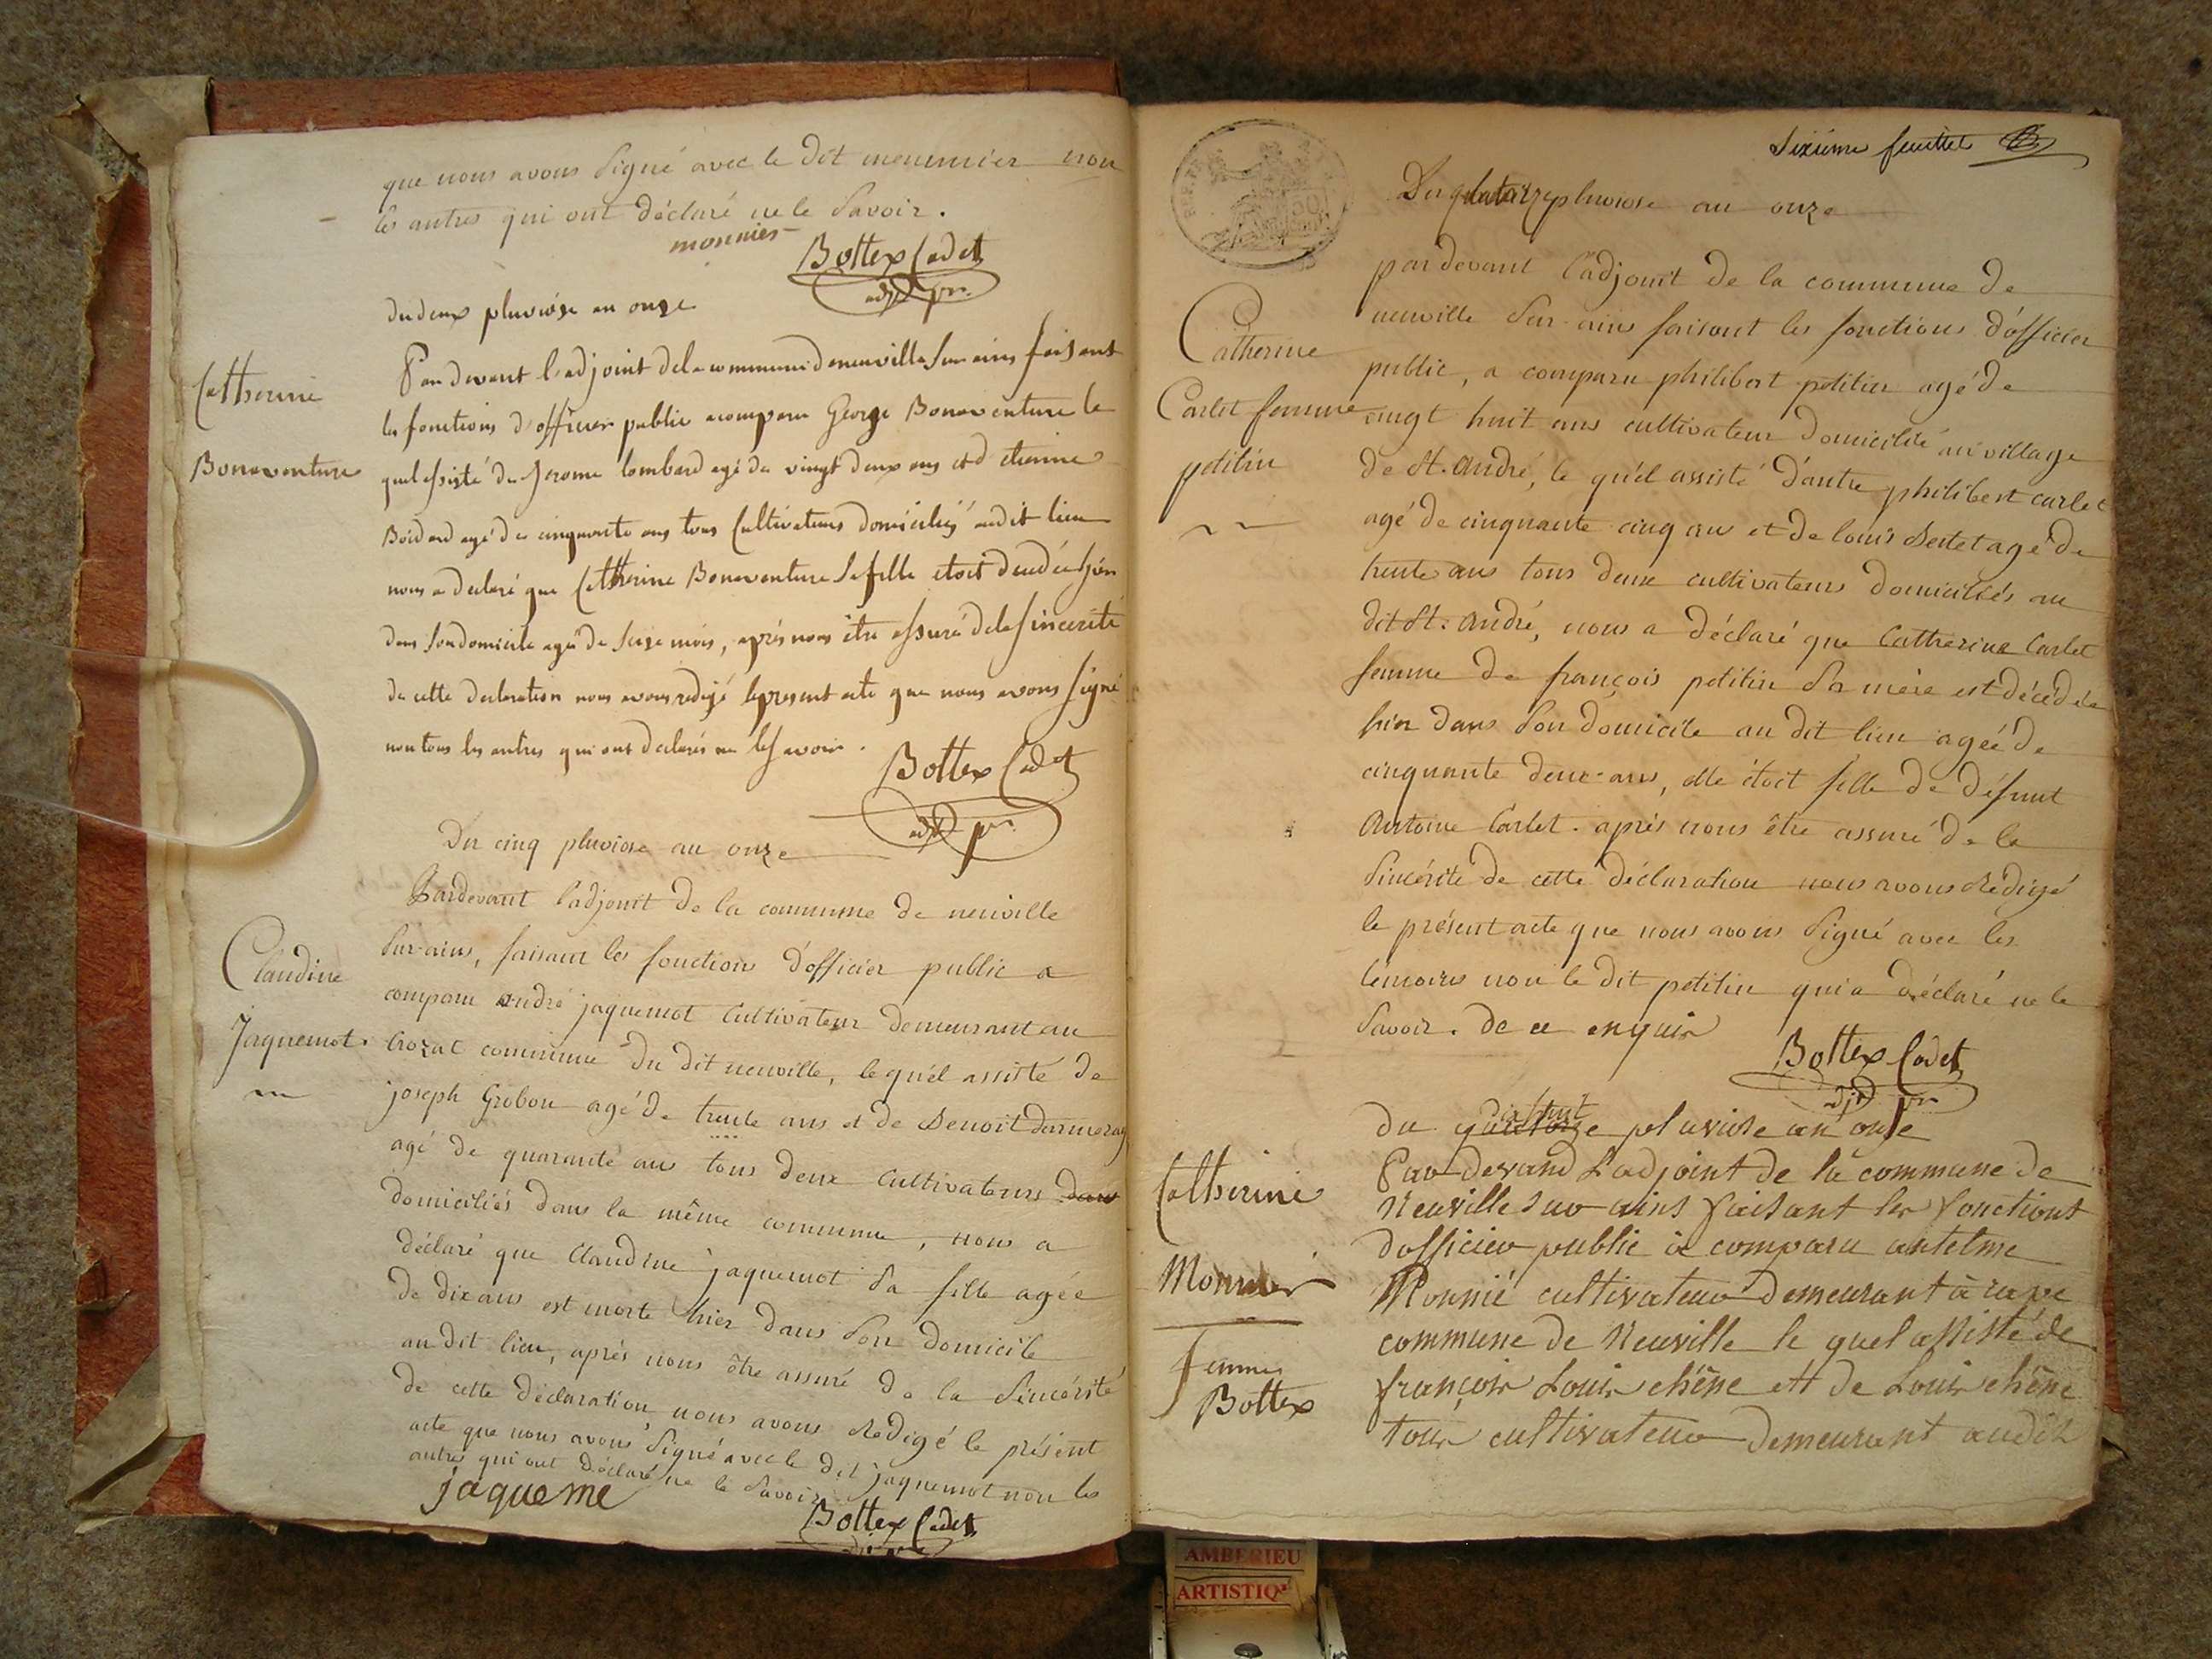 que nous avons signé avec le dit mounnier non
les autres qui ont déclaré ne le savoir.
monnier
Bottex Cadet
adjt pr.
du deux pluviose an onze
Catherine
Bonaventure
Par devant l'adjoint de la commune de neuville sur ains faisant
les fonctions d'officier public a comparu George Bonaventure le
quel assisté de Jerome lombard agé de vingt deux ans et d'etienne
agé de cinquante ans tous Cultivateurs domiciliés audit lieu
nous a declaré que Catherine Bonaventure sa fille etoit decedée hier
dans son domicile agé de seize mois, après nous être assuré de la sincerité
de cette declaration nous avons redigé le present acte que nous avons signé
non tous les autres qui ont declarés ne le savoir.
Bottex Cadet
adjt pr.
Du cinq pluviose an onze
Claudine
Jaquemot.
Pardevant l'adjoint de la commune de neuville
sur-ains, faisant les fonctions d'officier public a
comparu andré jaquemot Cultivateur demeurant au
Crozat commune du dit neuville, le quel assisté de
joseph Grobon agé de trente ans et de Benoit
agé de quarante ans tous deux Cultivateurs dans
domiciliés dans la même commune, nous a
déclaré que Claudine jaquemot sa fille agée
de dix ans est morte hier dans son domicile
au dit lieu, après nous être assuré de la sincérité
de cette déclaration nous avons redigé le présent
acte que nous avons signé avec le dit jaquemot non les
autres qui ont déclaré ne le savoir.
jaqueme
Bottex Cadet
Sixième feuillet
REP. FRA.
50
Du quatorze pluviose an onze
Catherine
Carlet femme
petitin
pardevant l'adjoint de la commune de
neuville sur-ains faisant les fonctions d'officier
public, a comparu philibert petitin agé de
vingt huit ans cultivateur domicilié au village
de St. André, le quel assisté d'autre philibert carlet
agé de cinquante cinq ans et de louis Bertet agé de
trente ans tous deux cultivateurs domiciliés au
dit St. André, nous a déclaré que Catherine Carlet
femme de françois petitin sa mère est décédée
hier dans son domicile au dit lieu agée de
cinquante deux ans, elle étoit fille de défunt
Antoine Carlet. après nous être assuré de la
sincérité de cette déclaration nous avons redigé
le présent acte que nous avons signé avec les
témoins non le dit petitin qui a déclaré ne le
savoir. de ce enquis
Bottex Cadet
adjt pr.
dix huit
du quatorze pluviose an onse
Catherine
Monnier
femme
Bottex
Par devand l'adjoint de la commune de
Neuville sur ains faisant les fonctions
d'officier public a comparu antelme
Monnié cultivateur demeurant à rape
commune de Neuville le quel assisté de
françois Louis chêne et de Louis chêne
tous cultivateur demeurant audit
AMBERIEU
ARTISTIQ